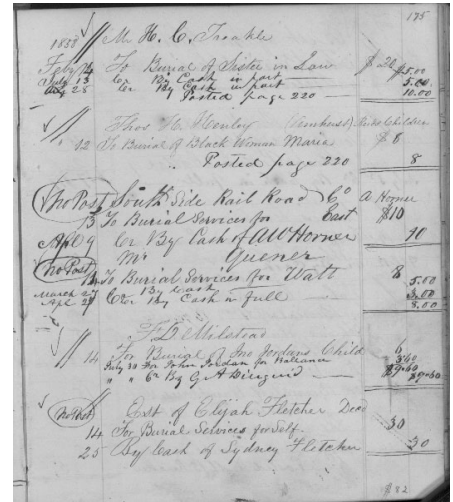 175
1858 // Mr H. C. Trakle
Feby 14 To Burial of Sister in Law $20 $5.00
July 13 Cr By Cash in part 5.00
Aug 28 Cr By Cash in part 10.00
Posted page 220
Thos H. Henley (Amherst) Children
12 To Burial of Black Woman Maria $8
Posted page 220 8
No Post South Side Rail Road Co A Horner
13 To Burial Services for East $10
Apl 9 Cr By Cash of A W Horner 10
No Post Mr Guener
To Burial Services for Watt 8
March 27 Cr By Cash 5.00
Apl 29 Cr By Cash in full 3.00
8.00
// F D Milstead
14 For Burial of Jno Jordans Child 6
July 30 For John Jordan for Ballance 3.60
" " Cr By G. A Diuguid $9.60 $9.60
No Post Est of Elijah Fletcher Decd
14 For Burial Services for Self. 30
25 By Cash of Sydney Fletcher 30
$82